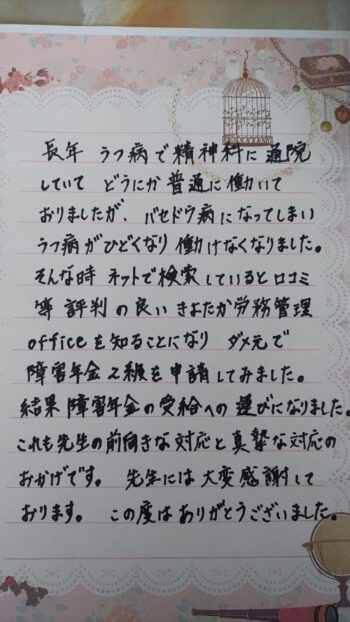 長年 うつ病で精神科に通院
していて どうにか普通に働いて
おりましたが、バセドウ病になってしまい
うつ病がひどくなり働けなくなりました。
そんな時 ネットで検索していると口コミ
等 評判の良い きよたか労務管理
officeを知ることになり ダメ元で
障害年金2級を申請してみました。
結果 障害年金の受給への運びになりました。
これも先生の前向きな対応と真摯な対応の
おかげです。 先生には大変感謝して
おります。 この度はありがとうございました。